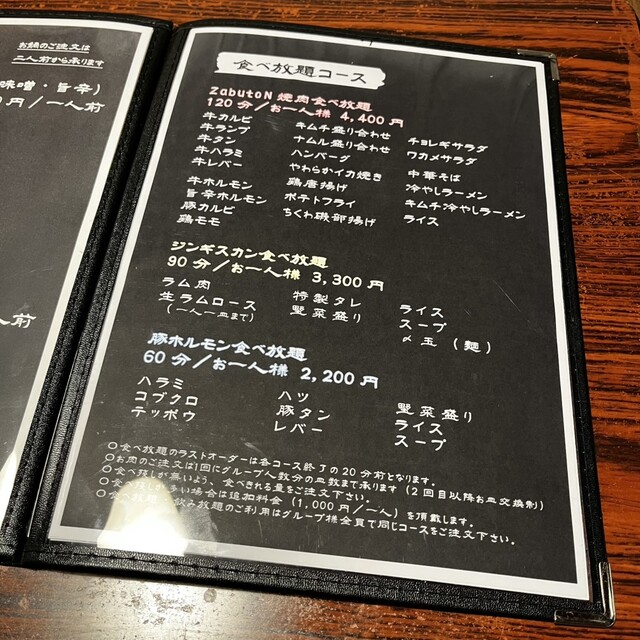 お鍋のご注文は
二人前から承ります
味噌・旨辛）
円／一人前
人前
食べ放題コース
ZabutoN 焼肉食べ放題
120分／お一人様 4,400円
牛カルビ キムチ盛り合わせ チョレギサラダ
牛ランプ ナムル盛り合わせ ワカメサラダ
牛タン ハンバーグ
牛ハラミ やわらかイカ焼き 中華そば
牛レバー 鶏唐揚げ 冷やしラーメン
牛ホルモン ポテトフライ キムチ冷やしラーメン
旨辛ホルモン ちくわ磯部揚げ ライス
豚カルビ
鶏モモ
ジンギスカン食べ放題
90分／お一人様 3,300円
ラム肉 特製タレ ライス
生ラムロース 野菜盛り スープ
（一人一皿まで） 〆玉（麺）
豚ホルモン食べ放題
60分／お一人様 2,200円
ハラミ ハツ 野菜盛り
コブクロ 豚タン ライス
テッポウ レバー スープ
○食べ放題のラストオーダーは各コース終了の20分前となります。
○お肉のご注文は1回にグループ人数分の皿数まで承ります（2回目以降お皿交換制）
○食べ残しが無いよう、食べきれる量をご注文下さい。
○食べ残しが多い場合は追加料金（1,000円／一人）を頂戴します。
○食べ放題、飲み放題のご利用はグループ様全員で同じコースをご注文下さい。